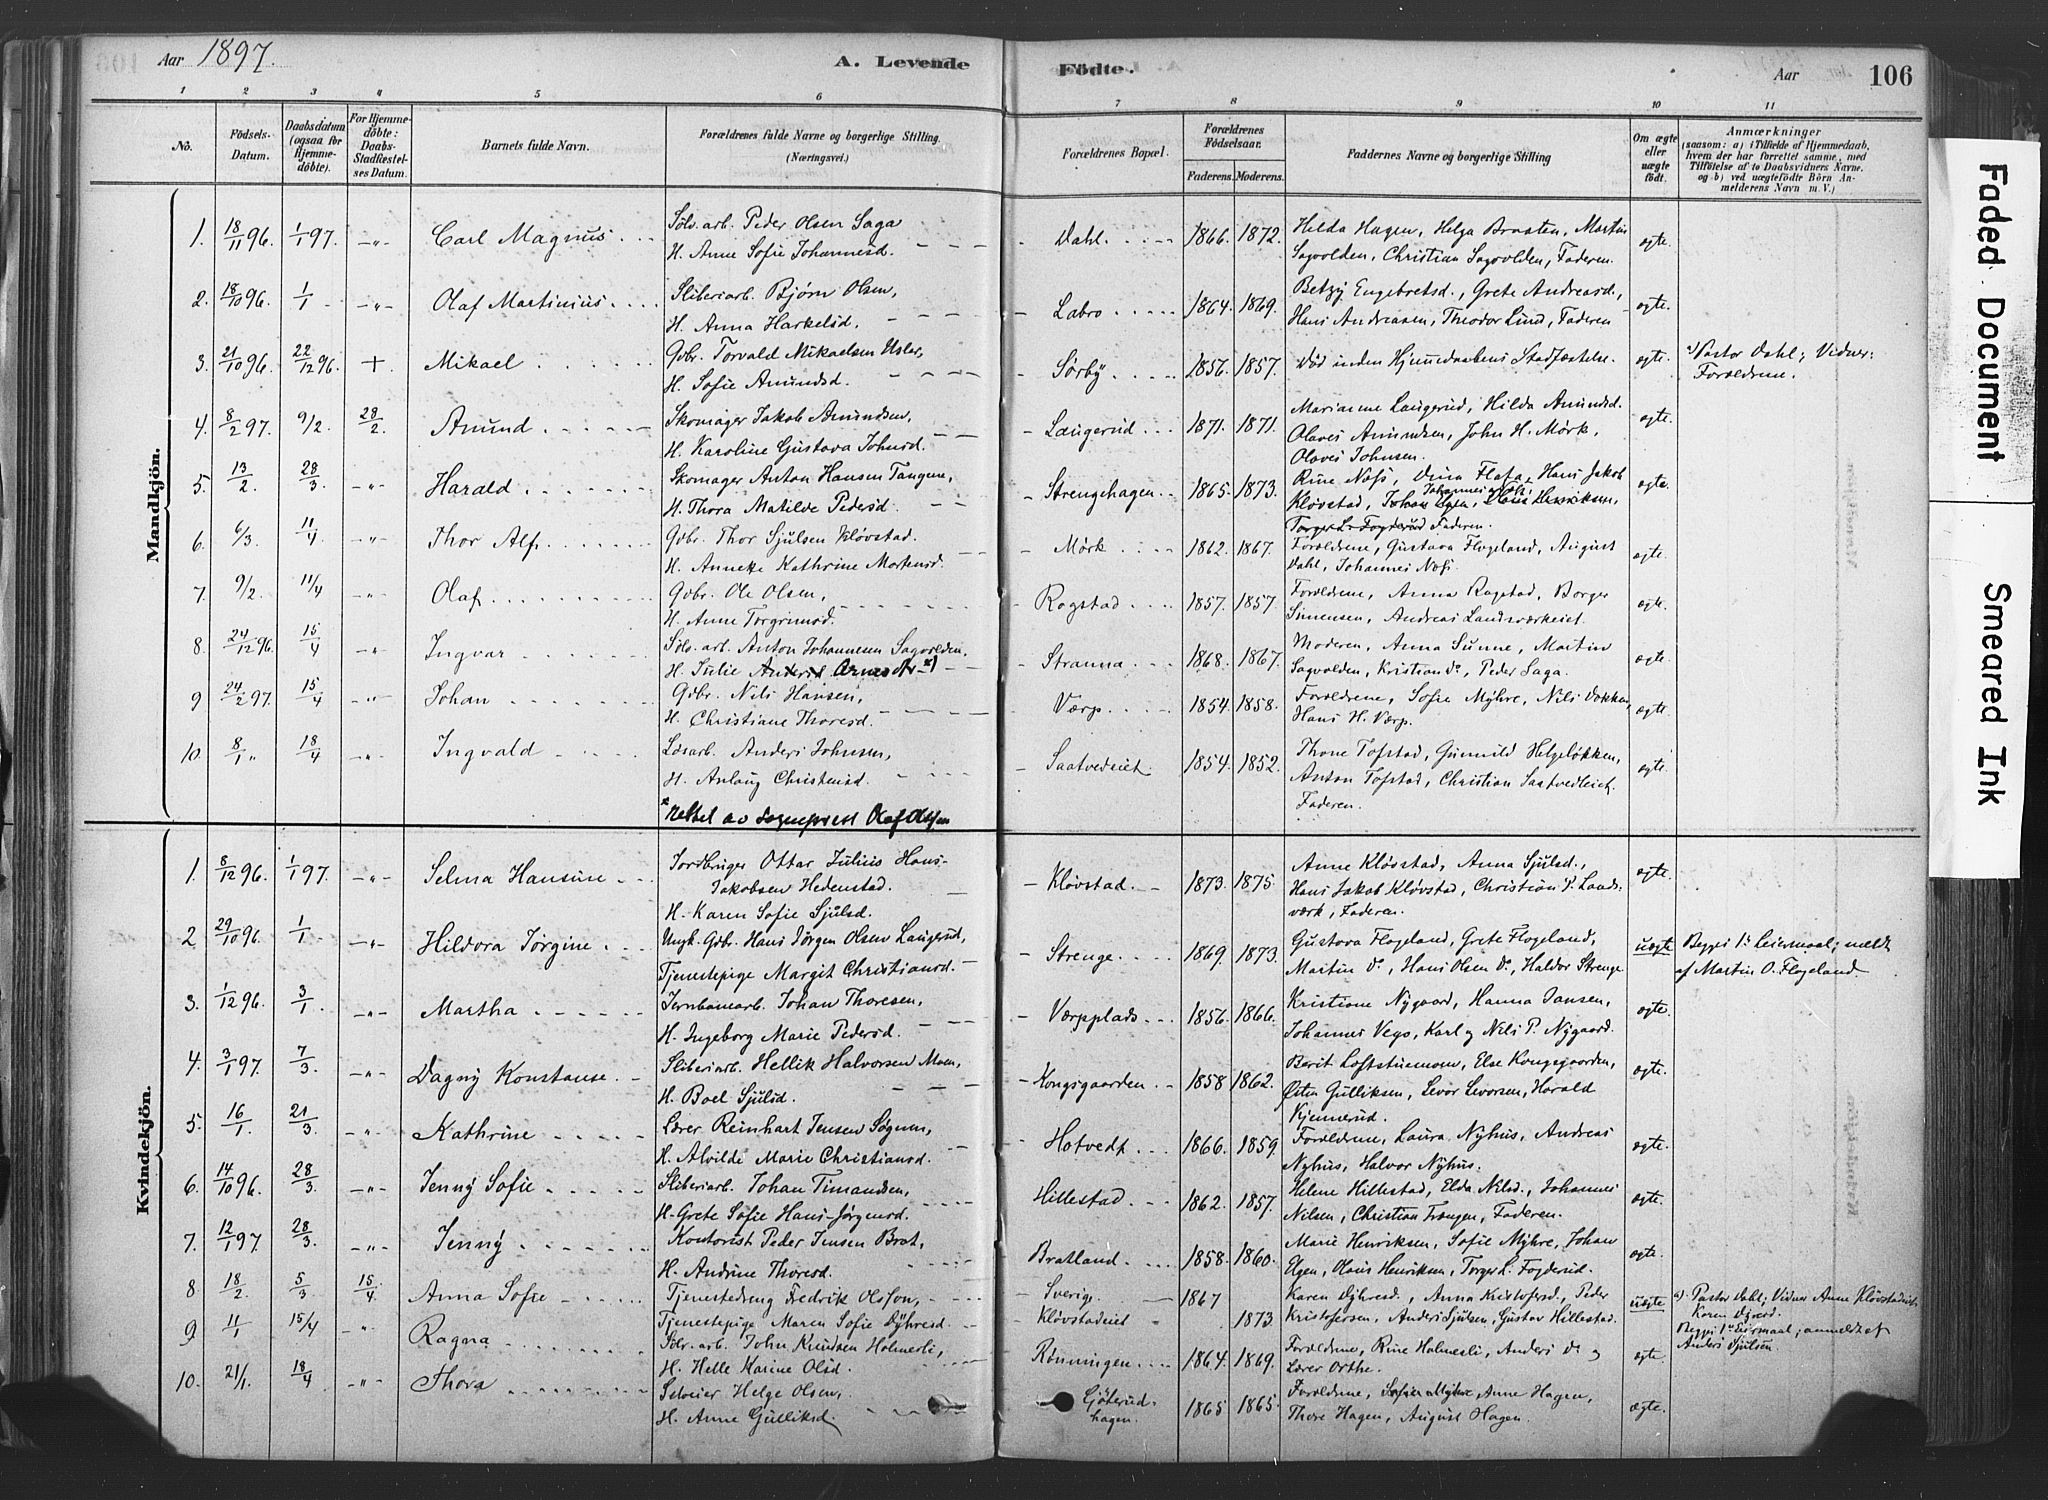 Aar 1897.
A. Levende
Födte.
Aar
106
1 2 3 4 5 6 7 8 9 10 11
No.
Födsels-
Datum.
Daabsdatum
(ogsaa for
Hjemme-
döbte).
For Hjemme-
döbte:
Daabs-
Stadfæstel-
ses Datum.
Barnets fulde Navn.
Forældrenes fulde Navne og borgerlige Stilling.
(Næringsvei.)
Forældrenes Bopæl.
Forældrenes
Fødselsaar.
Faderens. Moderens.
Faddernes Navne og borgerlige Stilling
Om ægte
eller
uægte
födt.
Anmærkninger
(saasom: a) i Tilfælde af Hjemmedaab,
hvem der har forrettet samme, med
Tilföielse af to Daabsvidners Navne,
og b) ved uægtefödte Börn An-
melderens Navn m.V.)
Mandkjön.
1. 18/11 96. 1/1 97. -„- Carl Magnus
Sölv.arb. Peder Olsen Saga
H. Anne Sofie Johannesd.
Dahl. 1866. 1872.
Hilda Hagen, Helga Braaten, Martin
Sagvolden, Christian Sagvolden, Faderen.
egte
2. 18/10 96. 1/1 -„- Olaf Martinius
Sliberiarb. Bjørn Olsen,
H. Anna Harkelsd.
Labro 1864. 1869.
Betzy Engebretsd., Grete Andreasd.,
Hans Andreasen, Theodor Lund, Faderen
egte.
3. 21/10 96. 22/12 96. + Mikael
Gdbr. Torvald Mikaelsen Usler,
H. Sofie Amundsd.
Sørby 1856. 1857.
Död inden Hjemmedaabens Stadfæstelse.
egte.
a) Pastor Dahl; Vidner:
Forældrene.
4. 8/2 97. 9/2. 28/2. Amund
Skomager Jakob Amundsen,
H. Karoline Gustava Johnsd.
Langerud 1871. 1871.
Marianne Langerud, Hilda Amundsd.
Olaves Amundsen, John H. Mörk,
Olaves Johnsen.
egte.
5. 13/2. 28/3 -„- Harald
Skomager Anton Hansen Tangene,
H. Thora Matilde Pedersd.
Strengehagen 1865. 1873.
Rine Næss, Dina Flata, Hans Jakob
Kløvstad, Johannes Næss,
Johan Elgen, Olaus Henriksen,
Torger L. Fogderud Faderen.
egte
6. 6/3. 11/4 -„- Thor Alf.
Gdbr. Thor Sjulsen Kløvstad
H. Anneke Kathrine Mortensd.
Mørk 1862. 1867.
Forældrene, Gustava Flogeland, August
Dahl, Johannes Næss.
egte
7. 9/2. 11/4 -„- Olaf
Gdbr. Ole Olsen,
H. Anne Torgrimsd.
Rogstad 1857. 1857.
Forældrene, Anna Rogstad, Borger
Simensen, Andreas Landsværkeiet.
egte
8. 24/12 96. 15/4 -„- Ingvar
Sölv.arb. Anton Johannesen Sagvolden,
H. Julie Andersd Arnesdtr x)
Stranna 1868. 1867.
Moderen, Anna Sunne, Martin
Sagvolden, Kristian Do, Peder Saga.
egte
9 24/2 97. 15/4 -„- Johan
Gdbr. Nils Hansen,
H. Christiane Thoresd.
Værp. 1854. 1858.
Forældrene, Sofie Myhre, Nils Dokken,
Hans H. Værp.
egte.
10. 8/1 „ 18/4 -„- Ingvald
Løsarb. Anders Johnsen,
H. Anlaug Christensd.
Saatvedeiet. 1854. 1852.
Thone Tofstad, Gunnild Helgeløkken,
Anton Tofstad, Christian Saatvedleiet.
Faderen.
egte
x Rettet av Sogneprest Olaf Olssen
Kvindekjön.
1. 8/12 96. 1/1 97. -„- Selma Hansine
Jordbruger Ottar Julius Hans-
Jakobsen Hedenstad.
H. Karen Sofie Sjulsd.
Kløvstad. 1873. 1875.
Anne Kløvstad, Anna Sjulsd.,
Hans Jakob Kløvstad, Christian P. Lands-
værk, Faderen.
egte.
2 29/10 96. 1/1. -„- Hildora Jørgine
Ungk. Gdbr. Hans Jørgen Olsen Langerud,
Tjenestepige Margit Christiansd.
Strenge. 1869. 1873.
Gustava Flogeland, Grete Flogeland,
Martin Do, Hans Olsen Do, Haldor Strenge
uegte
Begges 1. Leiermaal; meldt
af Martin O. Flogeland.
3. 1/12 96. 3/1 -„- Martha
Jernbanearb. Johan Thoresen,
H. Ingeborg Marie Pedersd.
Værpplads 1856. 1866.
Kristiane Nygaard, Hanna Jansen,
Johannes Vego, Karl og Nils P. Nygaard.
egte.
4. 3/1 97. 7/3. -„- Dagny Konstanse.
Sliberiarb. Hellik Halvorsen Moen,
H. Boel Sjulsd.
Kongsgaarden 1858 1862.
Berit Loftstuemoen, Else Kongsgaarden,
Østen Gulliksen, Levor Levorsen, Harald
Kjennerud.
egte.
5. 16/1. 21/3 -„- Kathrine
Lærer Reinhart Jensen Sögnen,
H. Alvilde Marie Christiansd.
Hotvedt 1866. 1859.
Forældrene, Laura Nyhus, Andreas
Nyhus, Halvor Nyhus.
egte
6. 14/10 96. 28/3. -„- Jenny Sofie
Sliberiarb. Johan Timandsen,
H. Grete Sofie Hans-Jørgensd.
Hillestad 1862. 1857.
Helene Hillestad, Elda Nilsd., Johannes
Nilsen, Christian Trongen, Faderen.
egte
7. 12/1 97. 28/3. -„- Jenny
Kontorist Peder Jensen Brat,
H. Andrine Thoresd.
Bratland 1858. 1860.
Marie Henriksen, Sofie Myhre, Johan
Elgen, Olaus Henriksen, Torger L. Fogderud.
egte.
8 18/2. 5/3 15/4. Anna Sofie
Tjenestedreng Fredrik Olsson,
Tjenestepige Maren Sofie Dyhresd.
Sverige
Kløvstadeiet
1867 1873.
Karen Dyhresd., Anna Kristofersd., Peder
Kristofersen, Anders Sjulsen, Gustav Hillestad.
uegte
a) Pastor Dahl; Vidner Anne Kløvstadeiet
Karen Dyresd.
Begges 1ste Leiermaal; anmeldt af
Anders Sjulsen.
9 11/1 15/4 -„- Ragna
Sölv.arb. John Knudsen Holmesli,
H. Helle Karine Olsd.
Rønningen 1864. 1869.
Forældrene, Rine Holmesli, Anders Do og
Lærer Orthe.
egte
10. 21/1. 18/4 -„- Thora
Selveier Helge Olsen,
H. Anne Gulliksd.
Gjöterud-
hagen. 1865 1865.
Forældrene, Sofie Myhre Anne Hagen,
Thore Hagen, August Hagen.
egte.
Faded Document
Smeared Ink